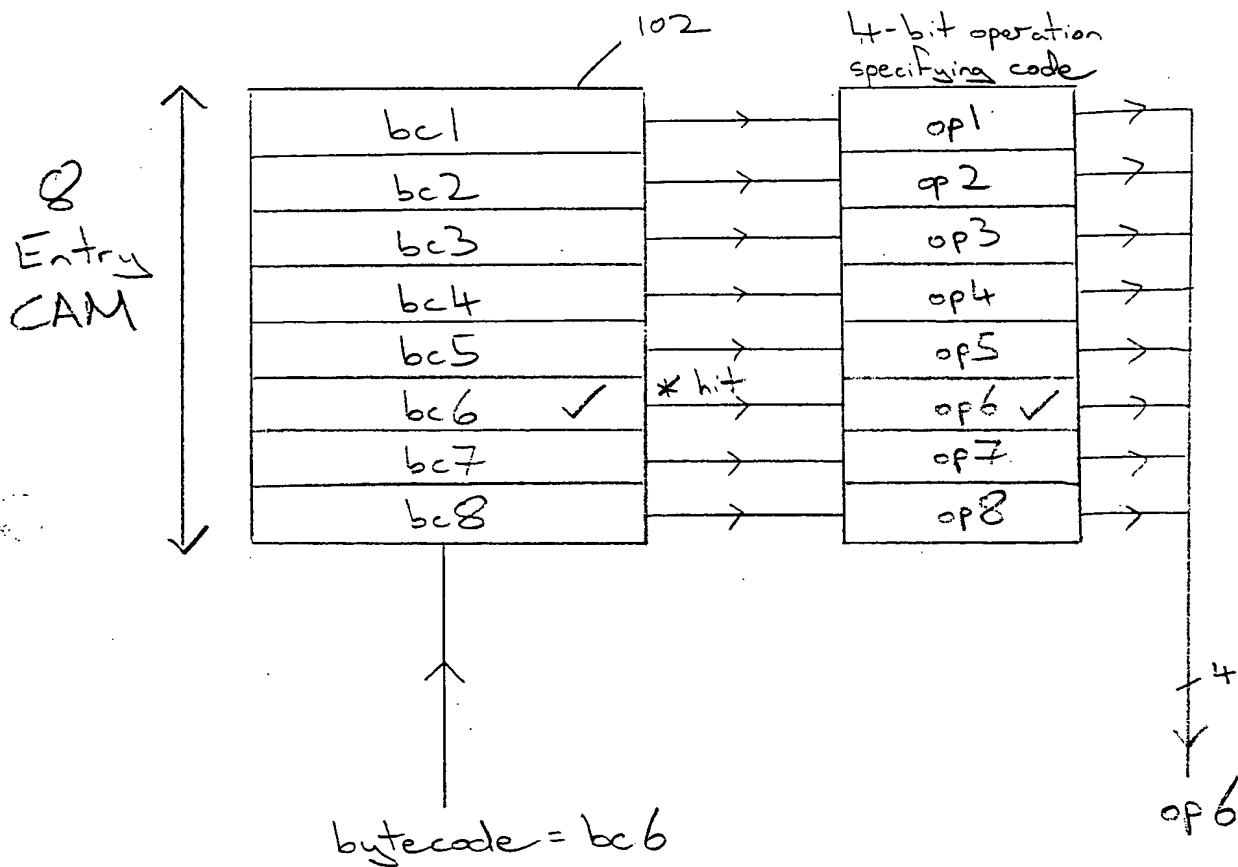 102
4-bit operation
specifying code
8
Entry
CAM
bc1
bc2
bc3
bc4
bc5
bc6 ✓
bc7
bc8
* hit
op1
op2
op3
op4
op5
op6 ✓
op7
op8
4
op6
bytecode = bc6